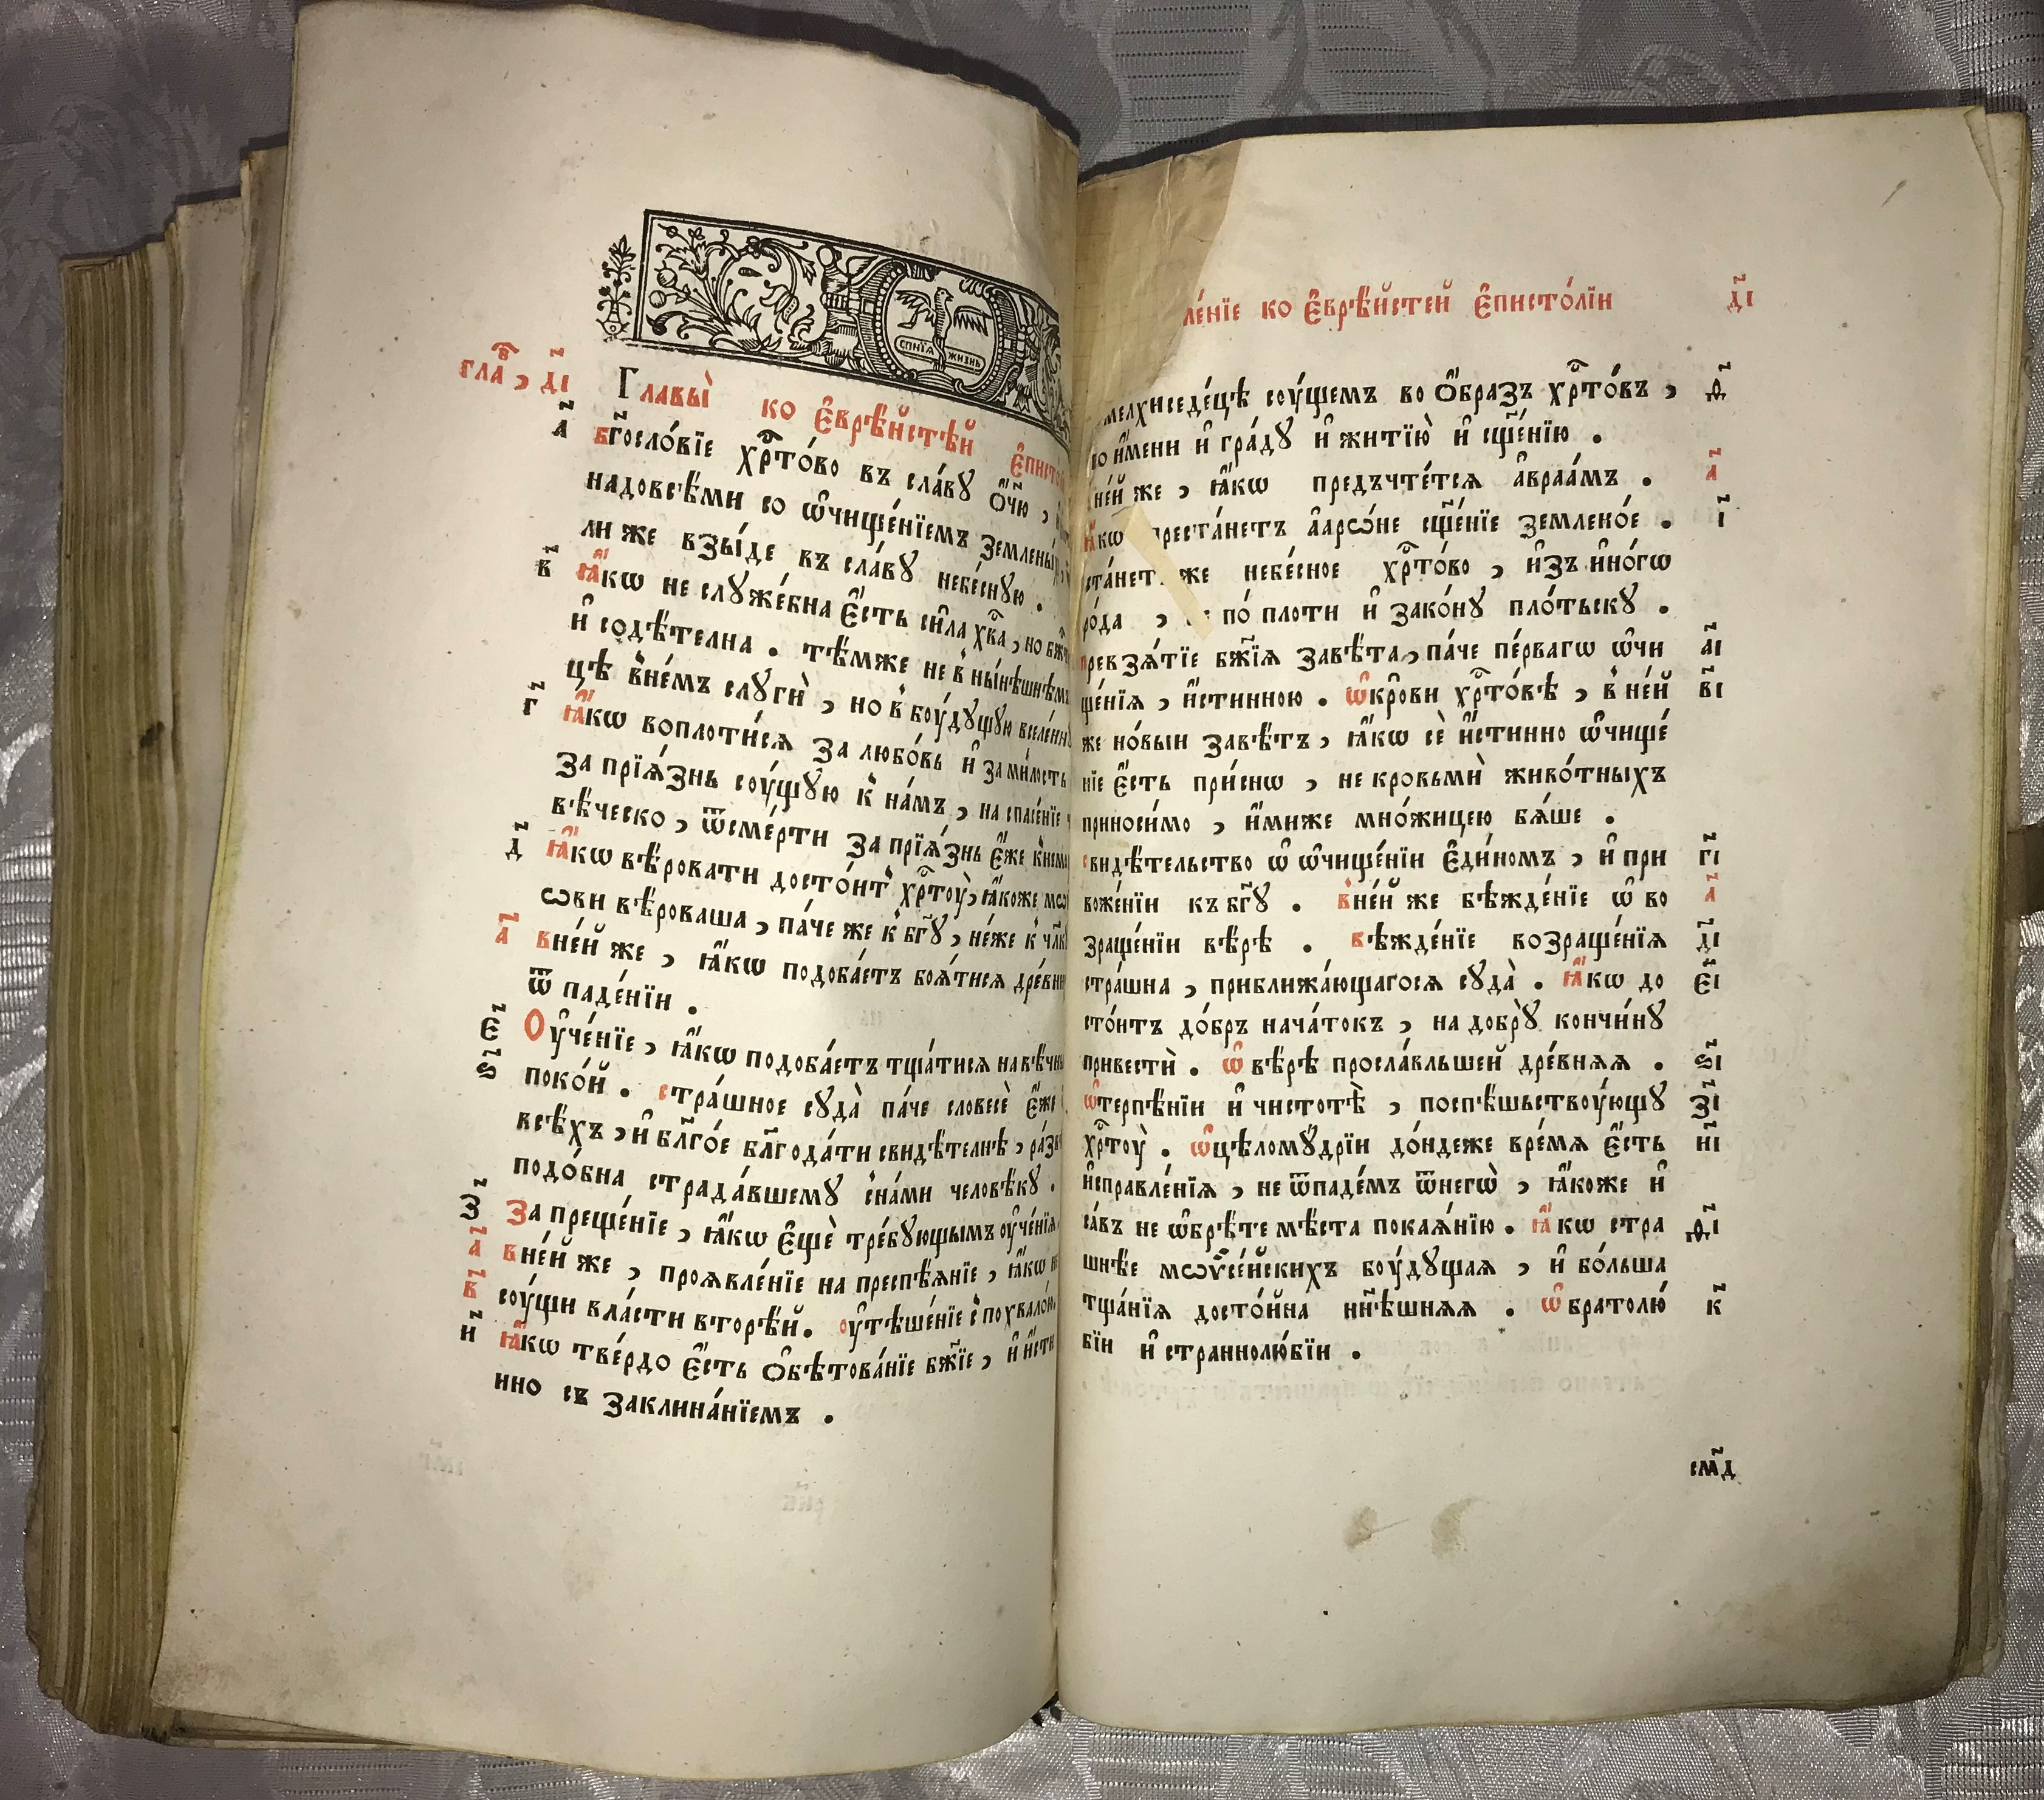 СПНІЯ ЖИЗНЬ
гла̑в , д҃і
Главы̀ ко є҆врѣ́йстѣй
а҃ бг҃осло́вїе хрⷭ҇то́во въ сла́вꙋ ѻ҆́ч҃ю ,
надовсѣ́ми со ѡ҆чище́нїемъ
ли же взы́де въ сла́вꙋ небе́снꙋю .
в҃ ꙗ҆́кѡ не слꙋже́бна є҆́сть си́ла хв҃а , но
и҆ содѣ́телна . тѣ́мже не в̾ ны́нѣшнѣмъ
цѣ в̾не́мъ слꙋгѝ , но в̾ боу́дꙋщꙋю
г҃ ꙗ҆́кѡ воплоти́сѧ за любо́вь и҆ за ми́лость
за прїѧ́знь соу́щꙋю к̾ на́мъ , на спасе́нїе
вѣ́ческо , ѿсме́рти за прїѧ́знь є҆́же
д҃ ꙗ҆́кѡ вѣ́ровати досто́итъ хрⷭ҇тоу̀ , ꙗ҆́коже
ѡви вѣ́роваша , па́че же к̾ бг҃ꙋ , не́же к̾
а҃ вне́й же , ꙗ҆́кѡ подоба́етъ боѧ́тисѧ
ѿ паде́нїи .
є҃ Оу҆че́нїе , ꙗ҆́кѡ подоба́етъ тща́тисѧ
ѕ҃ поко́й . стра́шное сꙋда̀ па́че словесѐ є҆́же
всѣ́хъ , и҆ бл҃го́е бл҃года́ти свидѣ́телнѣ ,
подо́бна страда́вшемꙋ с̾на́ми человѣ́кꙋ .
з҃ Запреще́нїе , ꙗ҆́кѡ є҆щѐ тре́бꙋющымъ оу҆че́нїѧ
а҃ вне́й же , проѧвле́нїе на преспѣ́ѧнїе , ꙗ҆́кѡ
в҃ соу́щи вла́сти вторѣ́й . оу҆тѣше́нїе с̾ похвало́й .
и҃ ꙗ҆́кѡ тве́рдо є҆́сть ѻ҆бѣтова́нїе бж҃їе ,
нно съ заклина́нїемъ .
ле́нїе ко є҆врѣ́йстей є҆писто́лїи д҃і
мелхиседе́цѣ соу́щемъ во ѻ҆́бразъ хрⷭ҇то́въ , ѳ҃
по и҆́мени и҆ гра́дꙋ и҆ житїю̀ и҆ сщ҃е́нїю .
не́й же , ꙗ҆́кѡ предъчте́тсѧ а҆враа́мъ . а҃
ꙗ҆́кѡ преста́нетъ а҆арѡ́не сщ҃е́нїе землено́е . і҃
ста́нет же небе́сное хрⷭ҇то́во , и҆зъ и҆но́гѡ
ро́да , по́ плоти и҆ зако́нꙋ пло́тьскꙋ .
превзѧ́тїе бж҃їѧ завѣ́та , па́че пе́рвагѡ ѡ҆чи а҃і
ще́нїѧ , и҆́стинною . ѡ҆кро́ви хрⷭ҇то́вѣ , в̾ не́й в҃і
же но́выи завѣ́тъ , ꙗ҆́кѡ сѐ и҆́стинно ѡ҆чище́
нїе є҆́сть при́снѡ , не кровьмѝ живо́тныхъ
приноси́мо , и҆́миже мно́жицею бѧ́ше .
свидѣ́тельство ѡ҆ ѡ҆чище́нїи є҆ди́номъ , и҆ при г҃і
боже́нїи къ бг҃ꙋ . вне́й же бѣжде́нїе ѡ҆ во а҃
зраще́нїи вѣ́рѣ . вѣжде́нїе возраще́нїѧ д҃і
стра́шна , приближа́ющагосѧ сꙋда̀ . ꙗ҆́кѡ до є҃і
сто́итъ до́бръ нача́токъ , на добрꙋ̀ кончи́нꙋ
привестѝ . ѡ҆ вѣ́рѣ просла́вльшей дре́внѧѧ . ѕ҃і
ѡ҆терпѣ́нїи и҆ чистотѣ̀ , поспѣ́шьствоу́ющꙋ з҃і
хрⷭ҇тоу̀ . ѡ҆цѣломꙋ́дрїи до́ндеже вре́мѧ є҆́сть и҃і
и҆справле́нїѧ , не ѿпаде́мъ ѿнегѡ̀ , ꙗ҆́коже и҆
са́въ не ѡ҆брѣ́те мѣ́ста покаѧ́нїю . ꙗ҆́кѡ стра ѳ҃і
шнѣ́е мѡѷсе́йскихъ боу́дꙋщаѧ , и҆ бо́льша
тща́нїѧ досто́йна нн҃ѣшнѧѧ . ѡ҆ братолю́ к҃
бїи и҆ страннолю́бїи .
см҃д